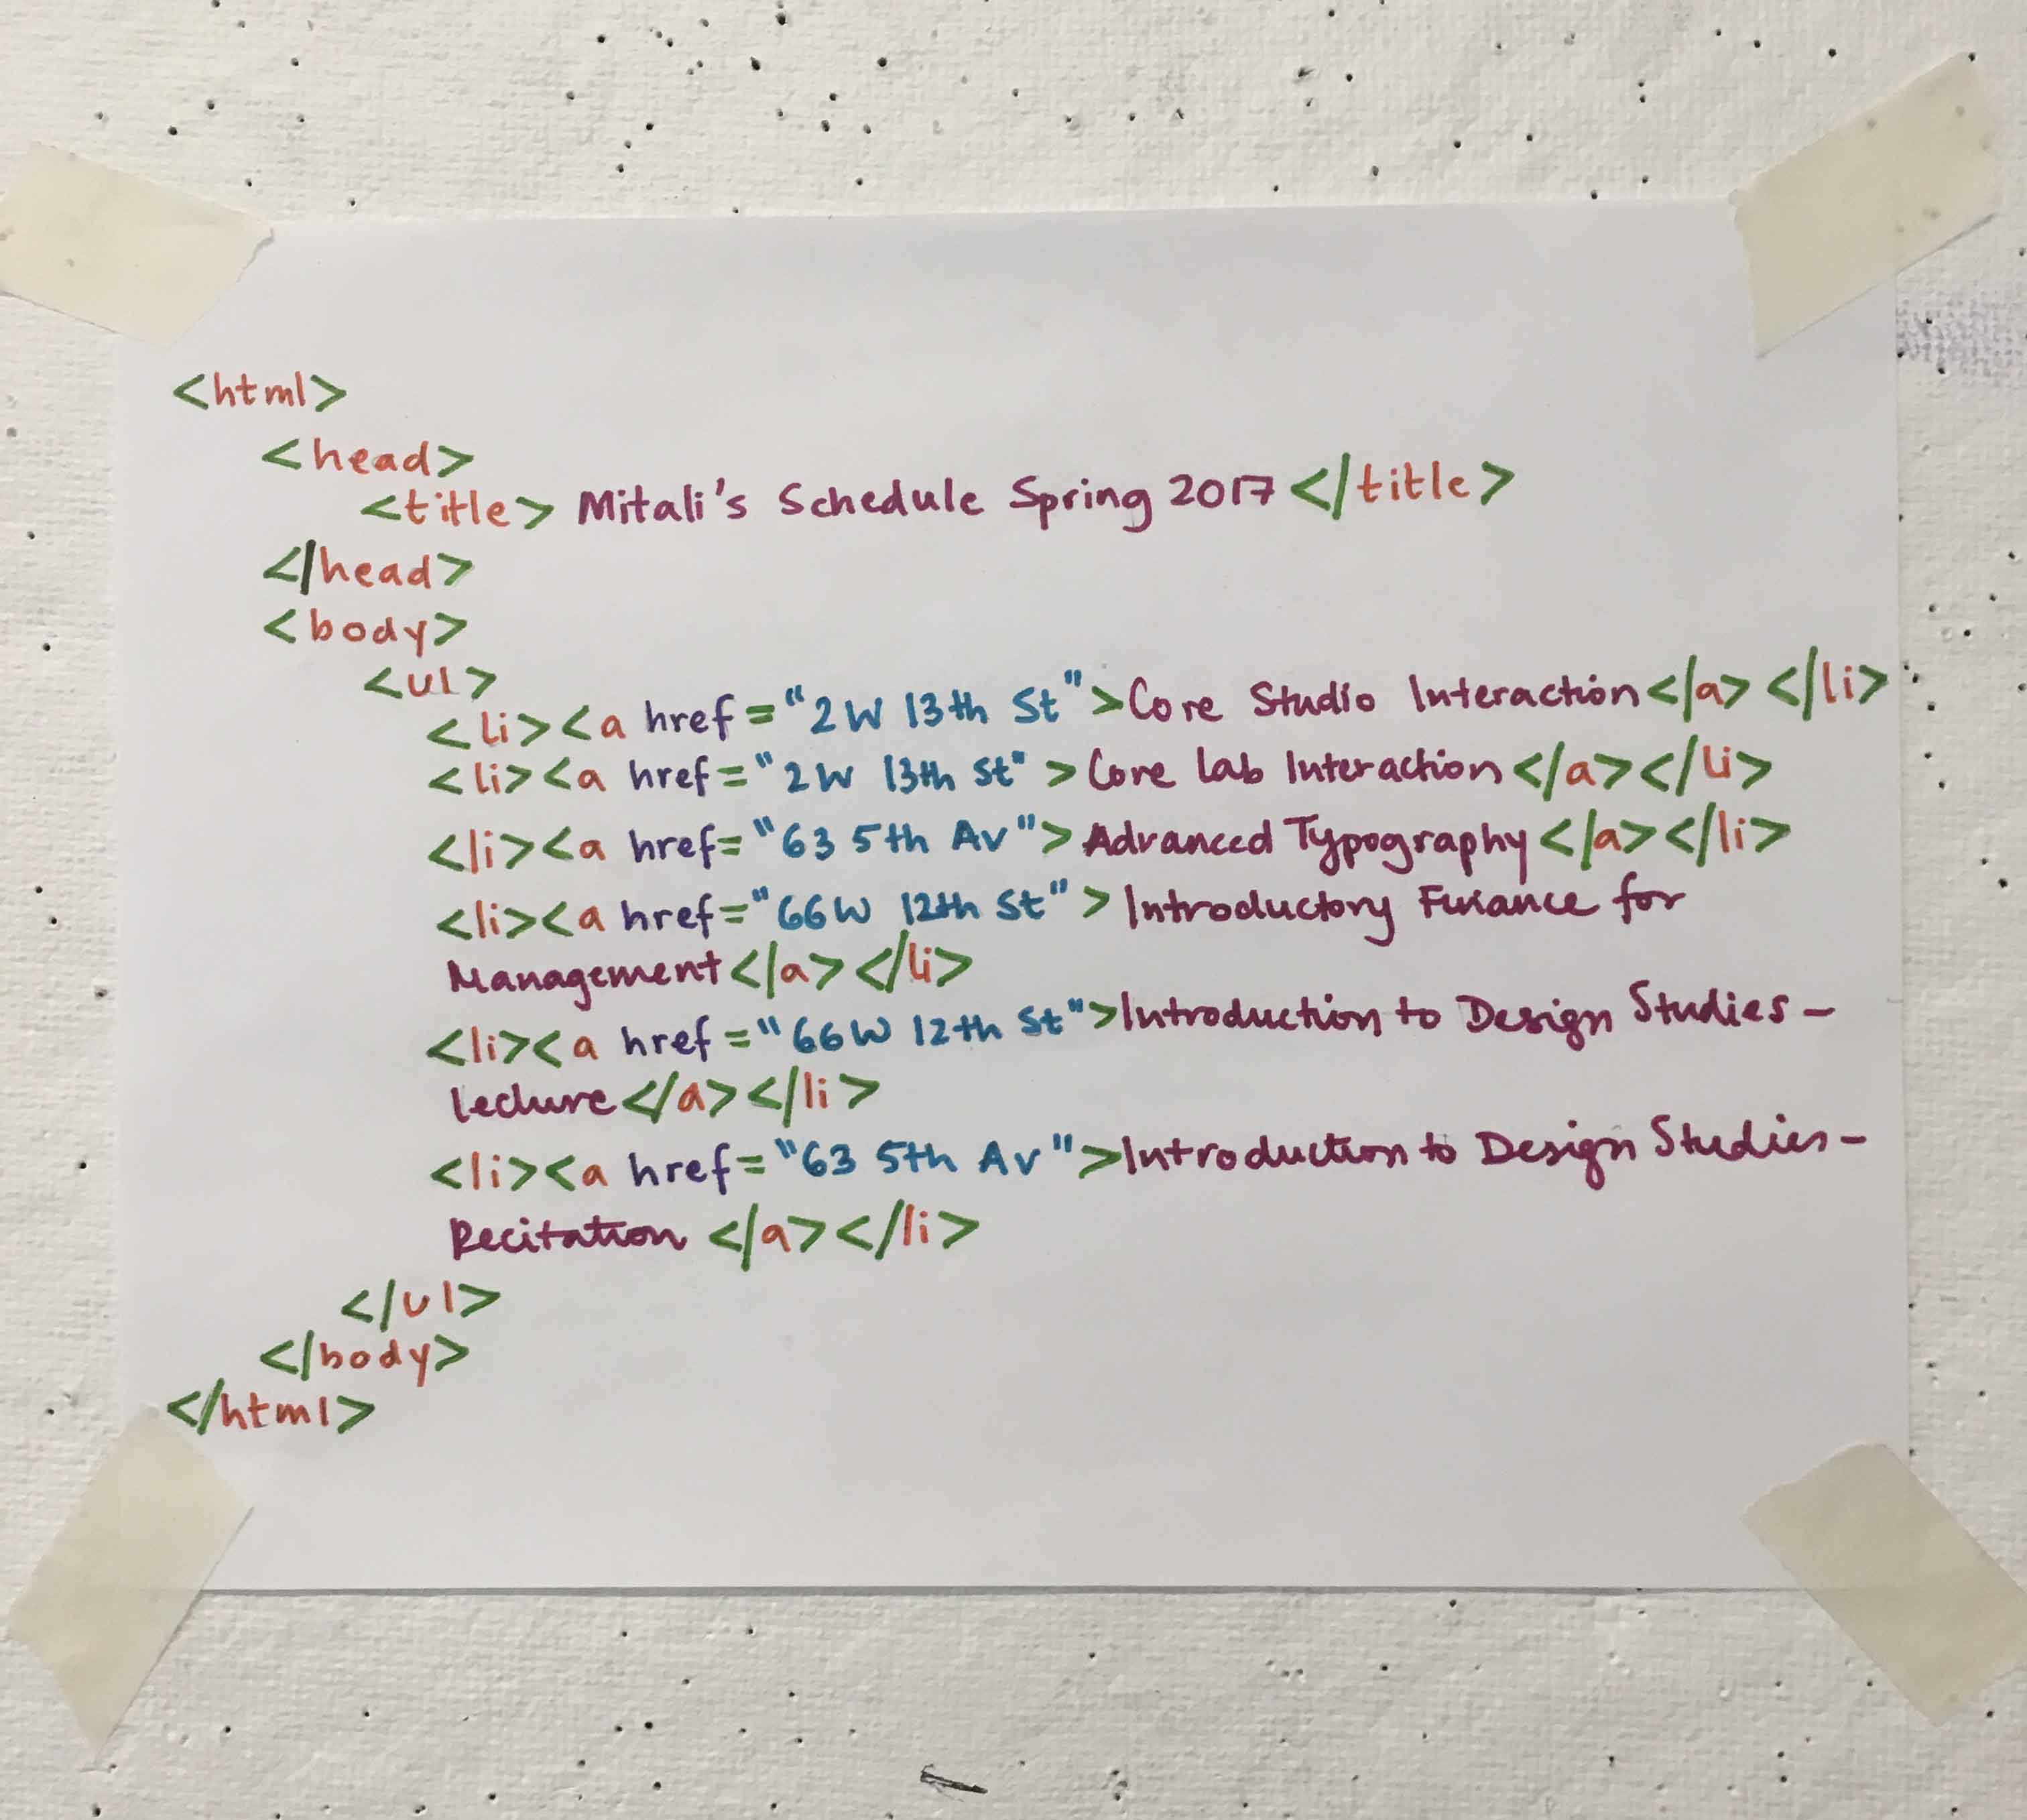 <html>
<head>
<title> Mitali's Schedule Spring 2017 </title>
</head>
<body>
<ul>
<li><a href="2W 13th St">Core Studio Interaction</a></li>
<li><a href="2W 13th St">Core Lab Interaction</a></li>
<li><a href="63 5th Av">Advanced Typography</a></li>
<li><a href="66W 12th St">Introductory Finance for
Management</a></li>
<li><a href="66W 12th St">Introduction to Design Studies-
Lecture</a></li>
<li><a href="63 5th Av">Introduction to Design Studies-
Recitation </a></li>
</ul>
</body>
</html>